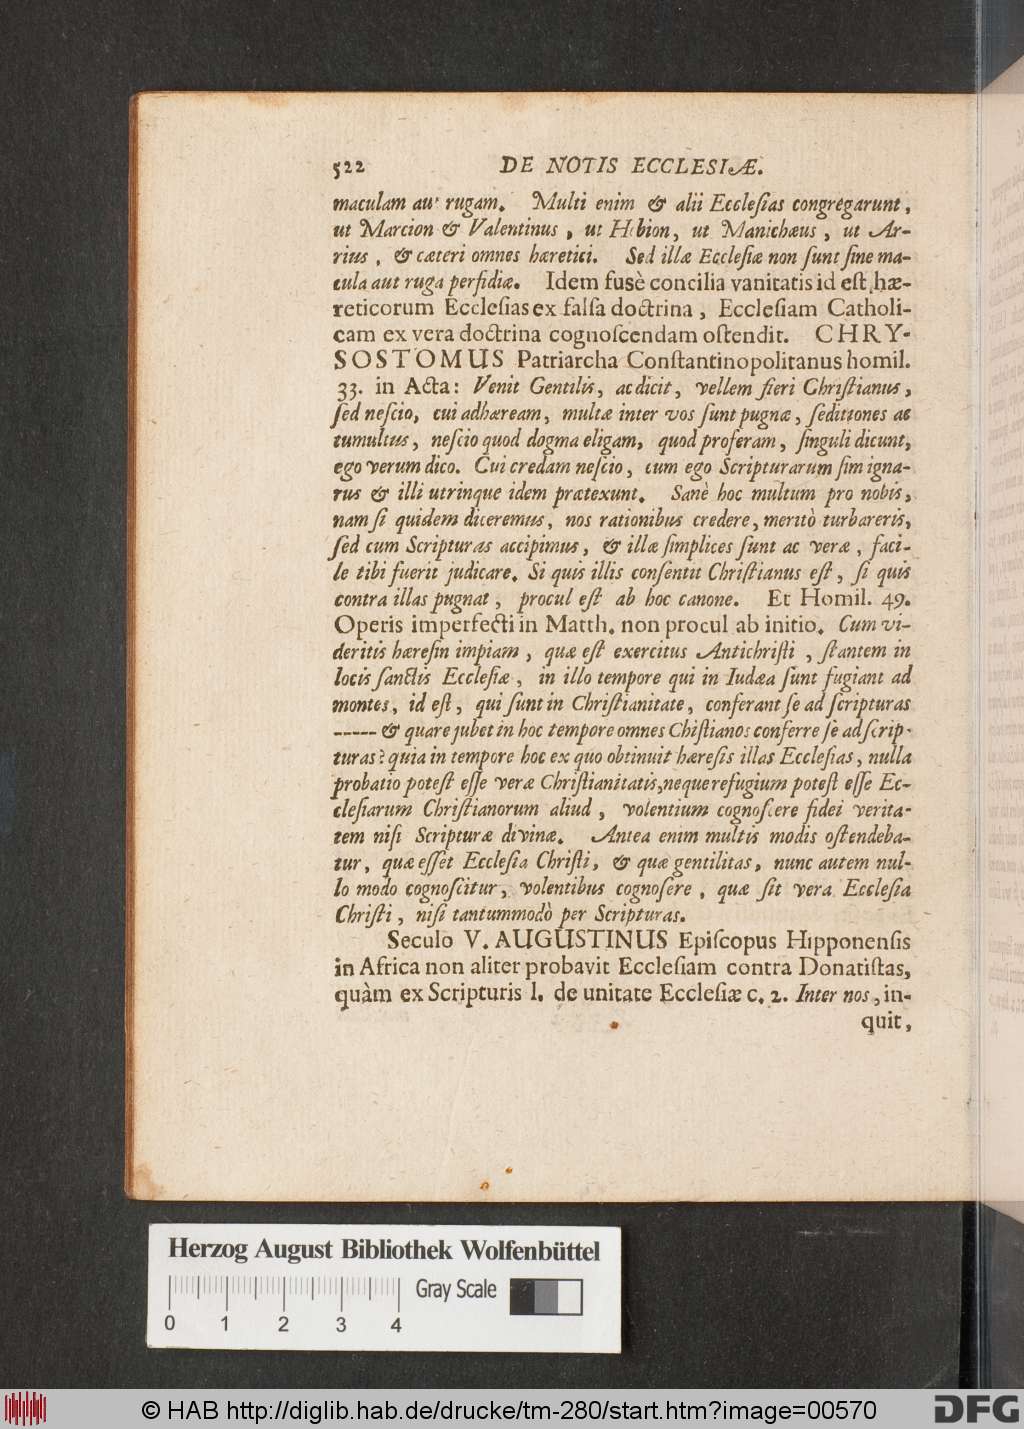 522 DE NOTIS ECCLESIÆ.
maculam aut rugam. Multi enim & alii Ecclesias congregarunt,
ut Marcion & Valentinus, ut Hebion, ut Manichæus, ut Ar-
rius, & cæteri omnes hæretici. Sed illæ Ecclesiæ non ſunt ſine ma-
cula aut ruga perfidiæ. Idem fusè concilia vanitatis id eſt hæ-
reticorum Eccleſias ex falſa doctrina, Eccleſiam Catholi-
cam ex vera doctrina cognoſcendam oſtendit. CHRY-
SOSTOMUS Patriarcha Conſtantinopolitanus homil.
33. in Acta: Venit Gentilis, ac dicit, vellem fieri Chriſtianus,
ſed neſcio, cui adhæream, multæ inter vos ſunt pugnæ, ſeditiones ac
tumultus, neſcio quod dogma eligam, quod proferam, ſinguli dicunt,
ego verum dico. Cui credam neſcio, cum ego Scripturarum ſim igna-
rus & illi utrinque idem prætexunt. Sanè hoc multum pro nobis,
nam ſi quidem diceremus, nos rationibus credere, meritò turbareris,
ſed cum Scripturas accipimus, & illæ ſimplices ſunt ac veræ, faci-
le tibi fuerit judicare. Si quis illis conſentit Chriſtianus eſt, ſi quis
contra illas pugnat, procul eſt ab hoc canone. Et Homil. 49.
Operis imperfecti in Matth. non procul ab initio. Cum vi-
deritis hæreſin impiam, quæ eſt exercitus Antichriſti, ſtantem in
locis ſanctis Eccleſiæ, in illo tempore qui in Iudæa ſunt fugiant ad
montes, id eſt, qui ſunt in Chriſtianitate, conferant ſe ad ſcripturas
----- & quare jubet in hoc tempore omnes Chiſtianos conferre ſe ad ſcrip-
turas? quia in tempore hoc ex quo obtinuit hæreſis illas Eccleſias, nulla
probatio poteſt eſſe veræ Chriſtianitatis, neque refugium poteſt eſſe Ec-
cleſiarum Chriſtianorum aliud, volentium cognoſcere fidei verita-
tem niſi Scripturæ divinæ. Antea enim multis modis oſtendeba-
tur, quæ eſſet Eccleſia Chriſti, & quæ gentilitas, nunc autem nul-
lo modo cognoſcitur, volentibus cognoſere, quæ ſit vera Eccleſia
Chriſti, niſi tantummodò per Scripturas.
Seculo V. AUGUSTINUS Epiſcopus Hipponenſis
in Africa non aliter probavit Eccleſiam contra Donatiſtas,
quàm ex Scripturis l. de unitate Eccleſiæ c. 2. Inter nos, in-
quit,
Herzog August Bibliothek Wolfenbüttel
Gray Scale
0 1 2 3 4
© HAB http://diglib.hab.de/drucke/tm-280/start.htm?image=00570
DFG